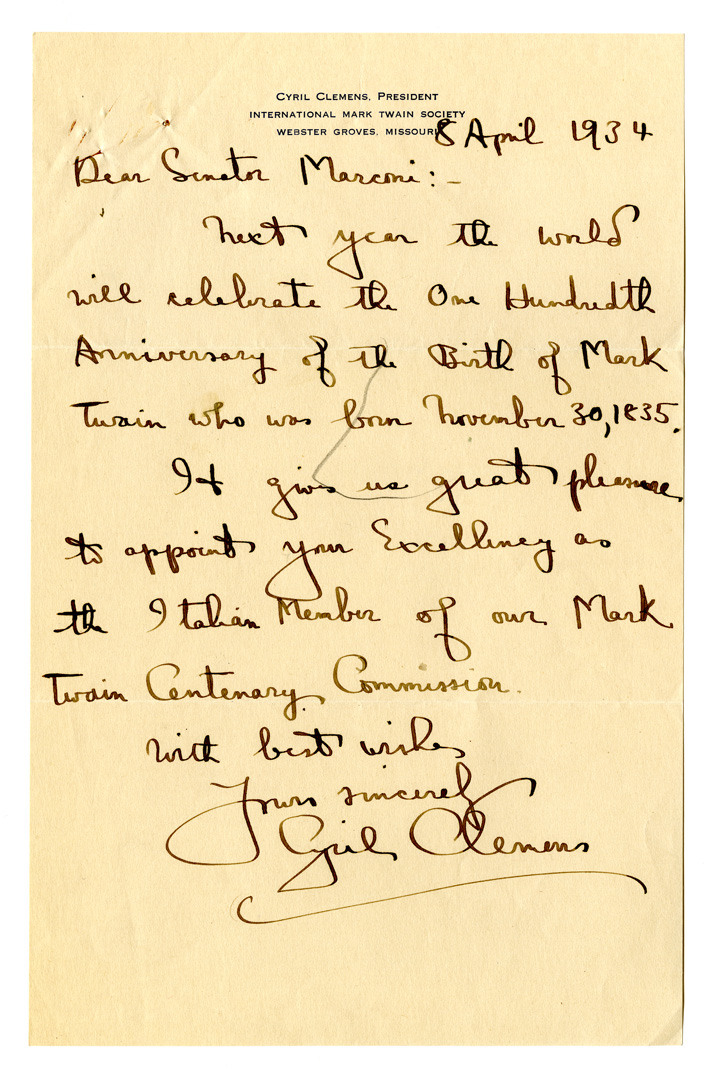 CYRIL CLEMENS, PRESIDENT
INTERNATIONAL MARK TWAIN SOCIETY
WEBSTER GROVES, MISSOURI
8 April 1934
Dear Senator Marconi:-
Next year the world
will celebrate the One Hundredth
Anniversary of the Birth of Mark
Twain who was born November 30, 1835.
It gives us great pleasure
to appoint your Excellency as
the Italian Member of our Mark
Twain Centenary Commission.
With best wishes
Yours sincerely
Cyril Clemens